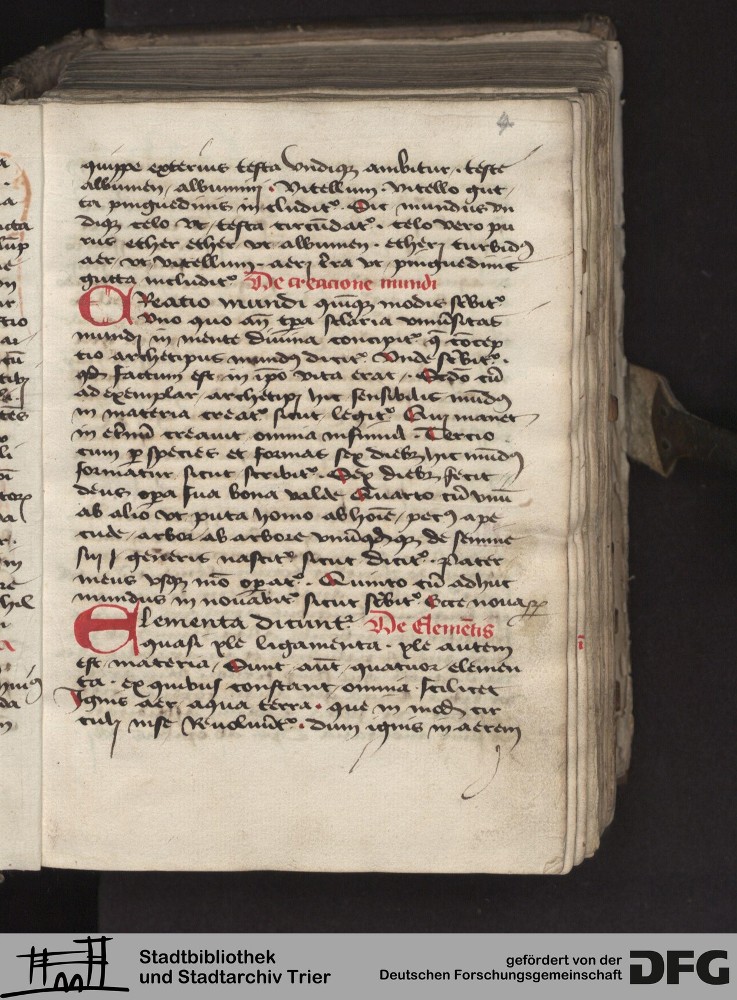 4
quippe exterius testa vndiqꝫ ambitur · teste
albumen / albumini · vitellum · vitello gut
ta pinguedinis includitᷣ Sic mundus vn
diqꝫ celo vt testa circūdatᷣ · celo vero pu
rus ether ether vt albumen · etheri turbidꝰ
aer vt vitellum · aeri t̄ra vt pinguedinis
gutta includitᷣ De creacione mundi
CReatio mundi quīqꝫ modis sc̄bitᷣ
vno quo an̄ tp̄a sclaria vniu̓sitas
mundi in mente diuina concipitᷣ q̄ cōcep
tio archetipus mundꝰ dicitᷣ Vnde sc̄bitᷣ ·
qd̄ factum est in ip̄o vita erat · Scd̄o cū
ad exemplar archetipi hic sensibilis mūdꝰ
in materia creatᷣ sicut legitᷣ Qui manet
in et̓nū creauit omnia insimul · Tercio
cum ꝑ species et formas sex diebꝫ hic mūdꝰ
formatur sicut scribitᷣ · Sex diebꝫ fecit
deus op̄a sua bona valde Quarto cū vnū
ab alio vt puta homo ab hoīe / pecꝰ a pe
cude / arbor ab arbore vnūqdqꝫ de semine
sui generis nascitᷣ sicut dicitᷣ · Pater
meus vsqꝫ mō op̄atᷣ · Quinto cū adhuc
mundus innouabitᷣ sicut sc̄bitᷣ Ecce noua
ELementa dicunt̓ De Elemētis
quasi yle ligamenta · yle autem
est materia / Sunt aūt quatuor elemen
ta · ex quibus constant omnia scilicet
Ignis aer aqua terra · que in modū cir
culi in se reuoluūtᷣ · dum ignis in aerem
Stadtbibliothek
und Stadtarchiv Trier
gefördert von der
Deutschen Forschungsgemeinschaft
DFG